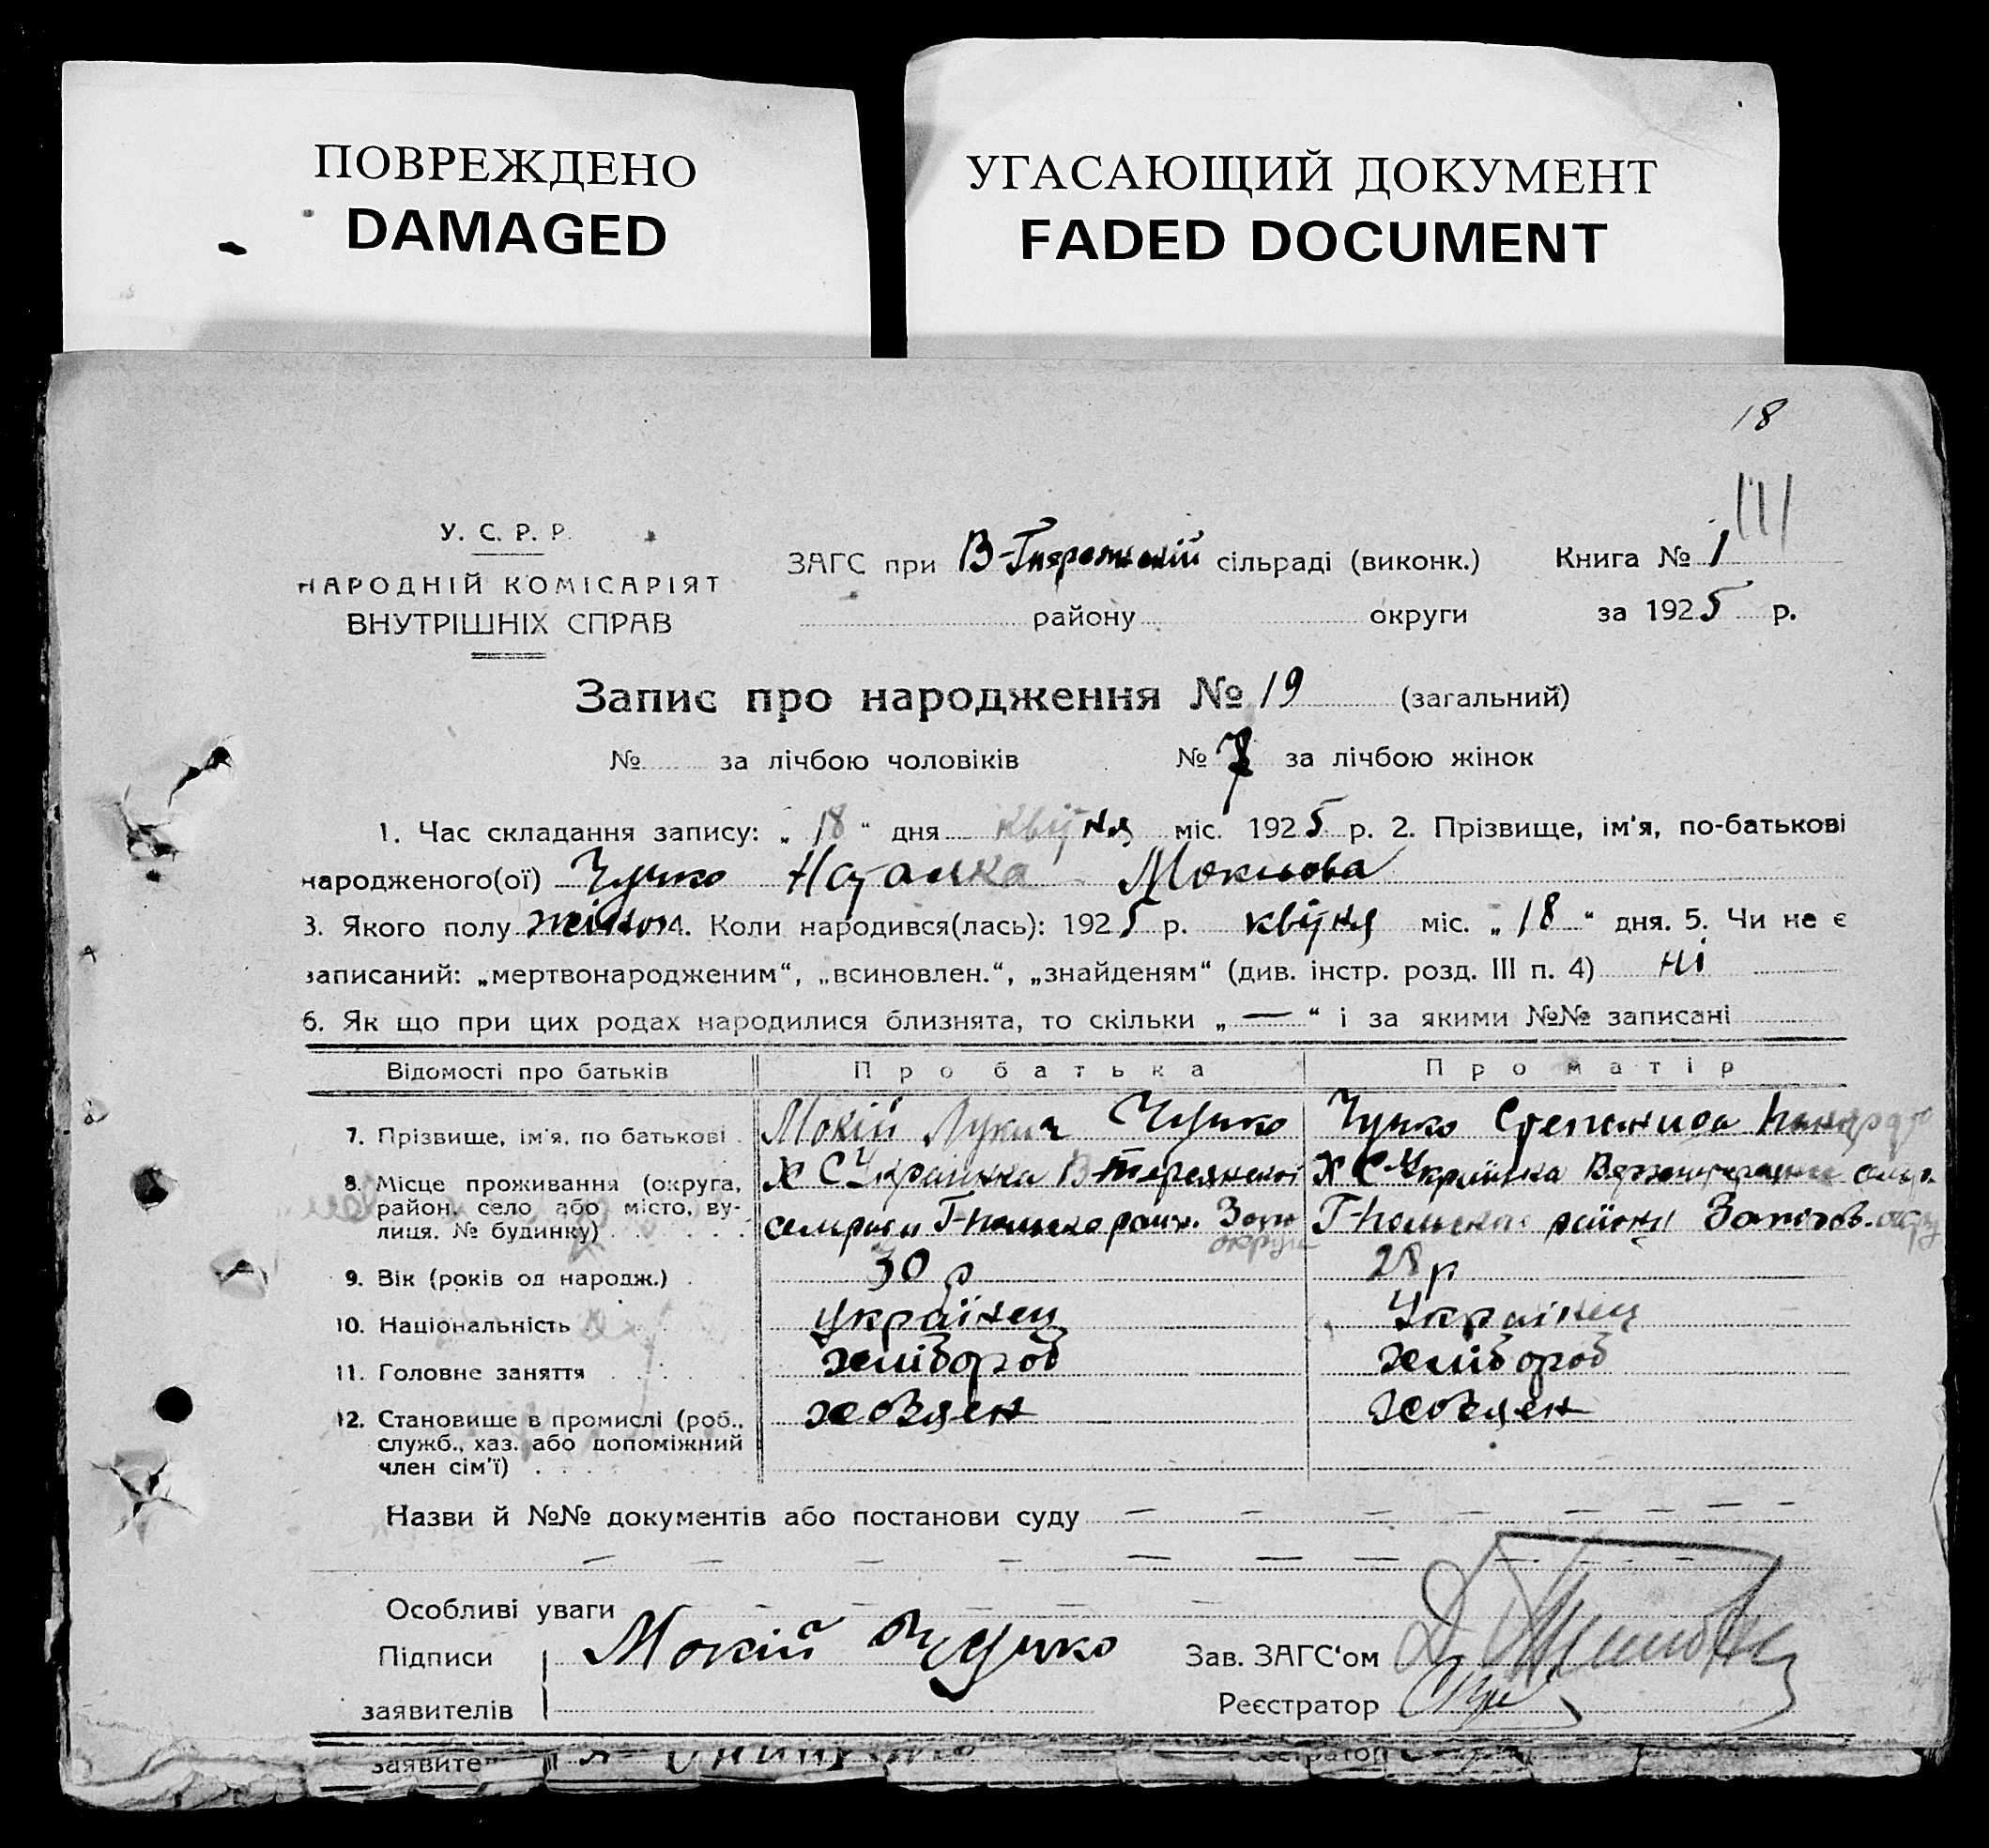 ПОВРЕЖДЕНО
DAMAGED
УГАСАЮЩИЙ ДОКУМЕНТ
FADED DOCUMENT
18
У. С. Р. Р.
НАРОДНІЙ КОМІСАРІЯТ
ВНУТРІШНІХ СПРАВ
ЗАГС при сільраді (виконк.)
району округи
Книга № 1
за 1925 р.
Запис про народження № 19 (загальний)
№ за лічбою чоловіків № 7 за лічбою жінок
1. Час складання запису: „ 18 “ дня квітня міс. 1925 р. 2. Прізвище, ім'я, по-батькові
народженого(ої) Чучко Наталка Мокиова
3. Якого полу жіноч 4. Коли народився(лась): 1925 р. квітня міс. „ 18 “ дня. 5. Чи не є
записаний: „мертвонародженим“, „всиновлен.“, „знайденям“ (див. інстр. розд. III п. 4) ні
6. Як що при цих родах народилися близнята, то скільки „ — “ і за якими №№ записані
Відомості про батьків Про батька Про матір
7. Прізвище, ім'я, по батькові Мокій Лукич Чучко Чучко Степанида
8. Місце проживання (округа, Х С Українка Х С Українка
район, село або місто, ву-
лиця, № будинку)
округи
9. Вік (років од народж.) 30 р 28 р
10. Національність Українец Українец
11. Головне заняття хлібороб хлібороб
12. Становище в промислі (роб., хозяен хозяен
служб., хаз. або допоміжний
член сім'ї)
Назви й №№ документів або постанови суду — — — — — — —
— — — — — — — — — —
Особливі уваги
Підписи Мокій Чучко Зав. ЗАГС'ом
заявителів Реєстратор
заявите